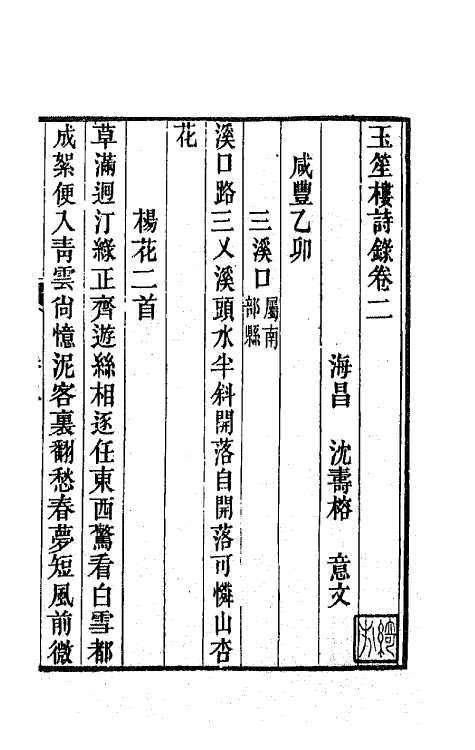 玉笙樓詩錄卷二
海昌 沈壽榕 意文
咸豐乙卯
三溪口屬南部縣
溪口路三乂溪頭水半斜開落自開落可憐山杏
花
楊花二首
草滿迴汀綠正齊遊絲相逐任東西驚看白雪都
成絮便入青雲尙憶泥客裏翻愁春夢短風前微